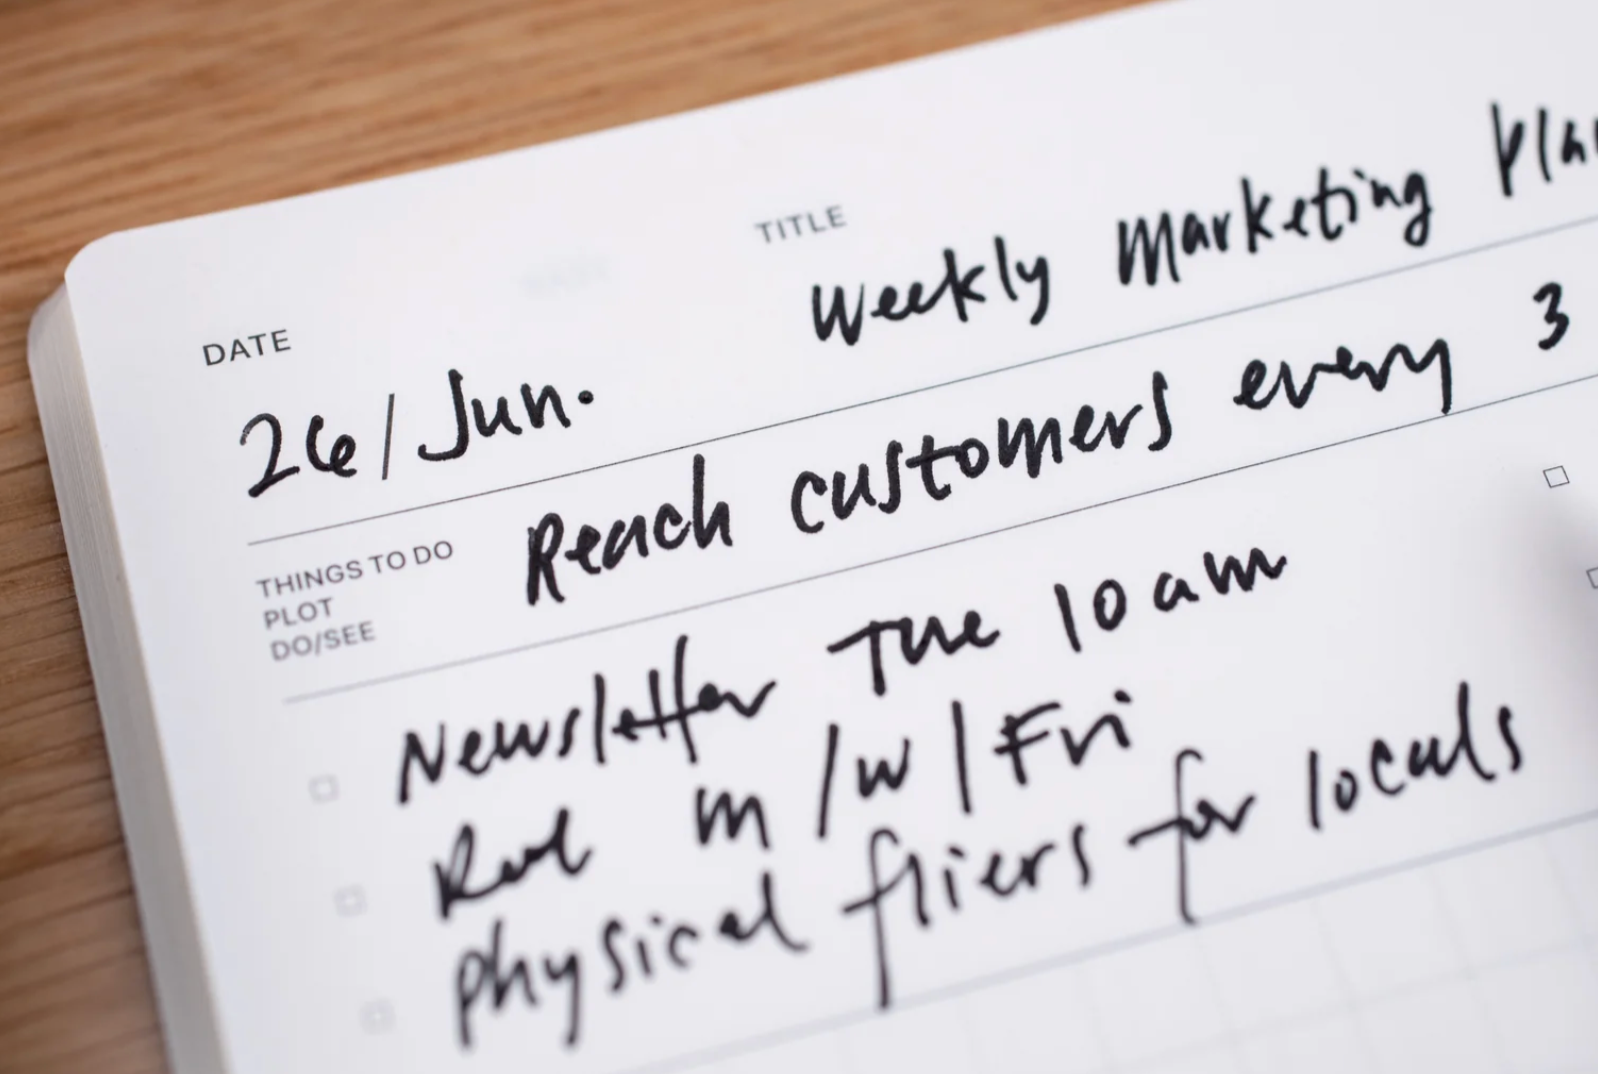 TITLE
Weekly Marketing Plan
DATE
26/Jun.
THINGS TO DO
PLOT
DO/SEE
Reach customers every 3
Newsletter Tue 10 am
m/w/Fri
physical fliers for locals